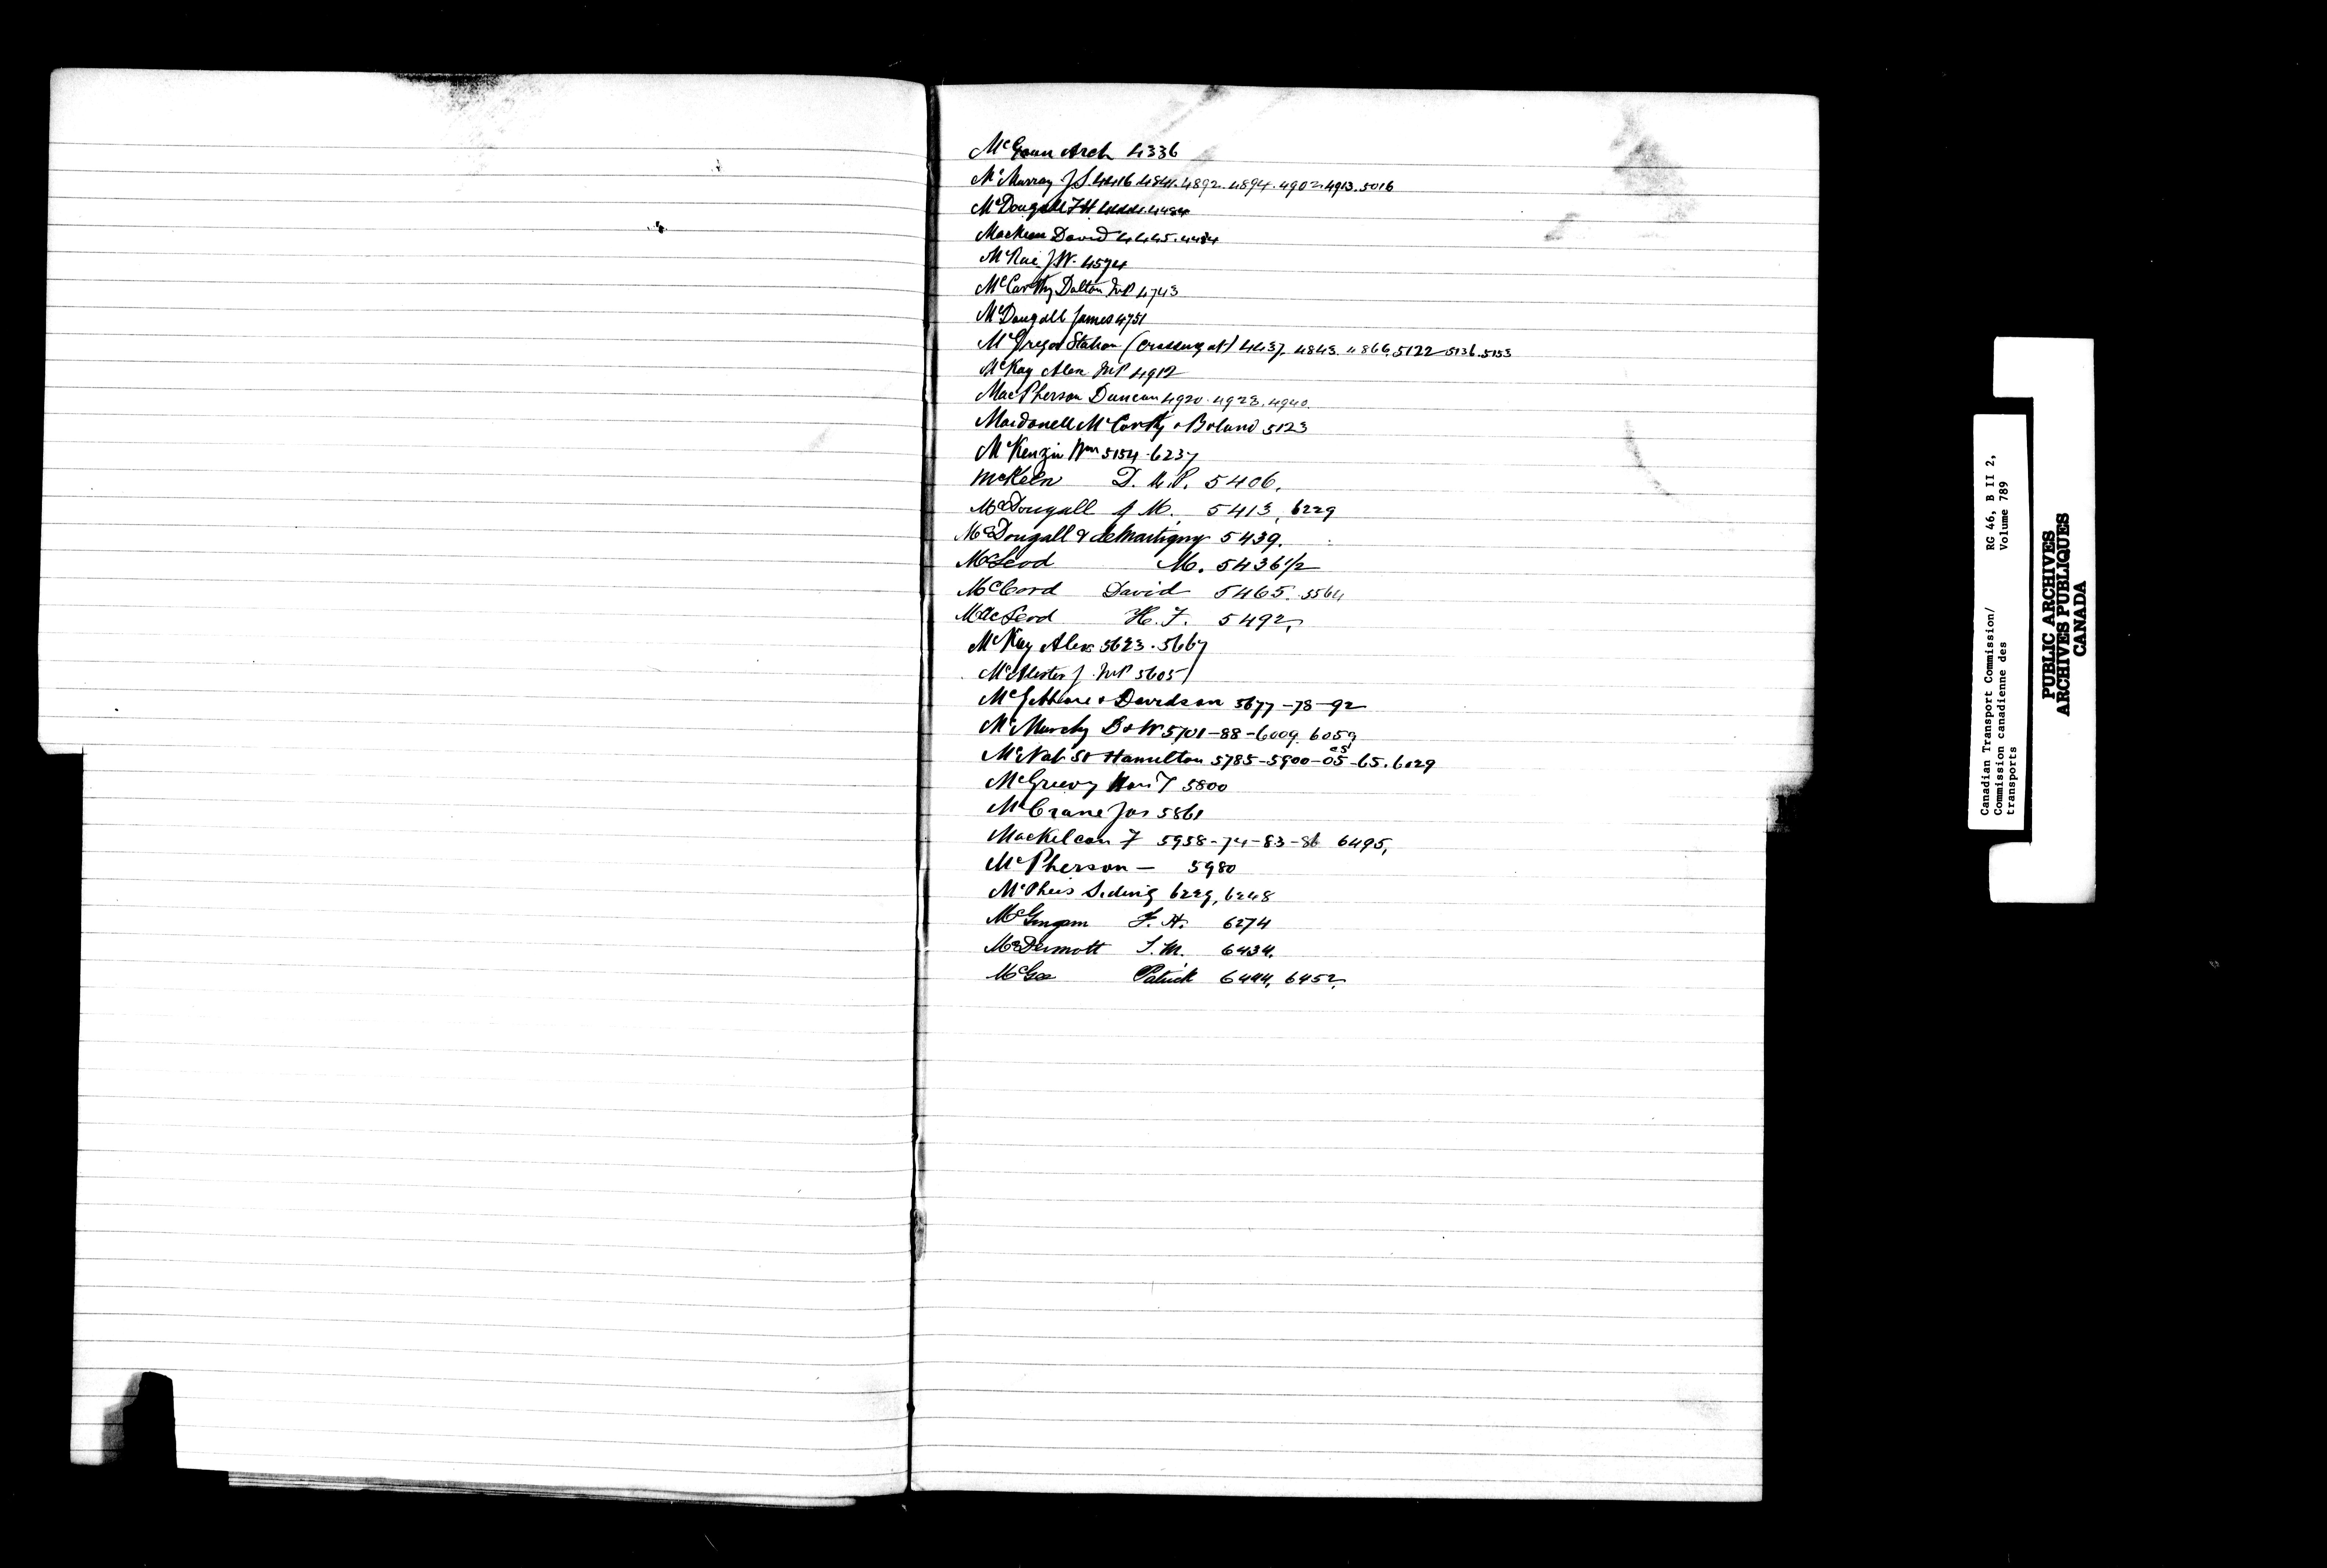 McGoun Arch 4336
McMurray J.S. 4416.4841.4892.4894.4902.4913.5016
McDougall F H 4444.4484
MacKean David 4445.4484
McRae J.W. 4574
McCarthy Dalton MP 4743
McDougall James 4751
McGregor Station (Crossing at) 4437. 4843. 4866. 5122-5136.5153
McKay Alex MP 4912
MacPherson Duncan 4920.4923.4940.
Macdonell McCarthy & Boland 5123
McKenzie Wm 5154.6237
McKeen D. M.P. 5406.
McDougall J M. 5413, 6229
McDougall & de Martigny 5439.
McLeod M. 5436 1/2
McCord David 5465. 5564
MacLeod H. F. 5492,
McKay Alex 5623.5667
McAlister J. MP 5605
McGibbone & Davidson 5677-78-92
McMurchy D & W 5701-88-6009. 6059
McNab St Hamilton 5785-5900-05-65.6029
McGreevy Hon T 5800
McCrane Jas 5861
MacKelcan F 5958-74-83-86 6495,
McPherson - 5980
McPhees Siding 6229, 6248
F. H. 6274
McDermott S. M. 6434.
McGee Patrick 6444, 6452.
Canadian Transport Commission/ RG 46, B II 2,
Commission canadienne des Volume 789
transports
PUBLIC ARCHIVES
ARCHIVES PUBLIQUES
CANADA